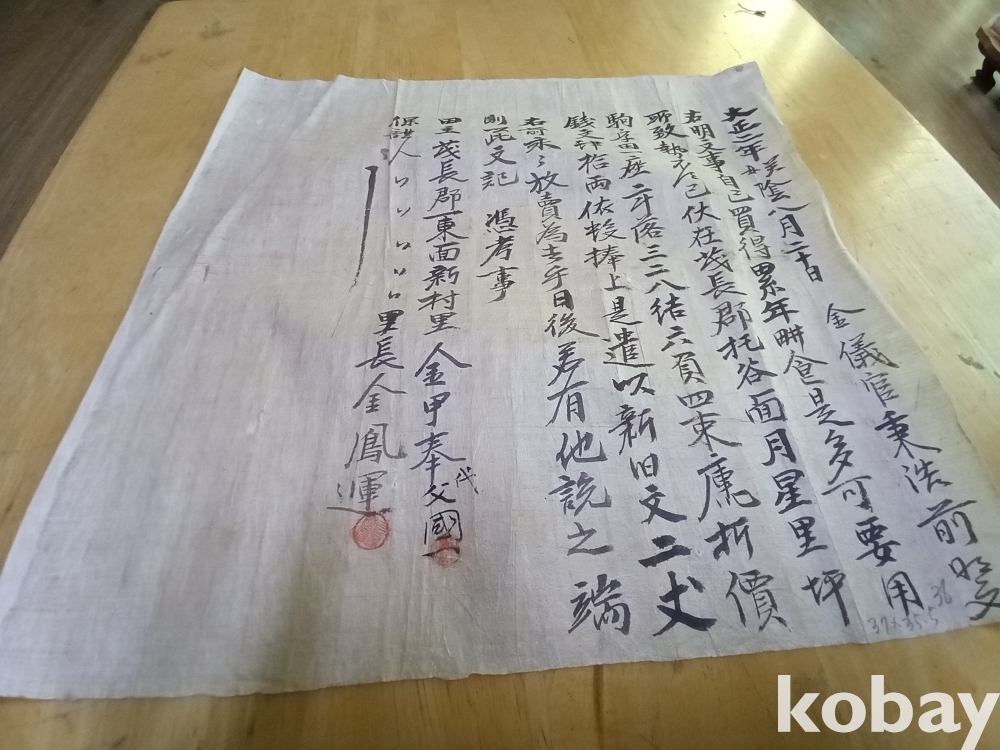 大正二年癸陰八月二十日 金儀官秉浩前明文
右明文事自己買得累年畊食是多可要用
所致勢不得已伏在茂長郡托谷面月星里坪
駒字田一座二斗落三二八結六負四束廤折價
錢文肆拾兩依数捧上是遣以新旧文二丈
右前永永放賣為去乎日後若有他説之端
則此文記 憑考事
田主茂長郡一東面新村里 金甲奉父代國
保證人 〃 〃 〃 〃 〃 里長金鳳運
37×35.5
38
kobay